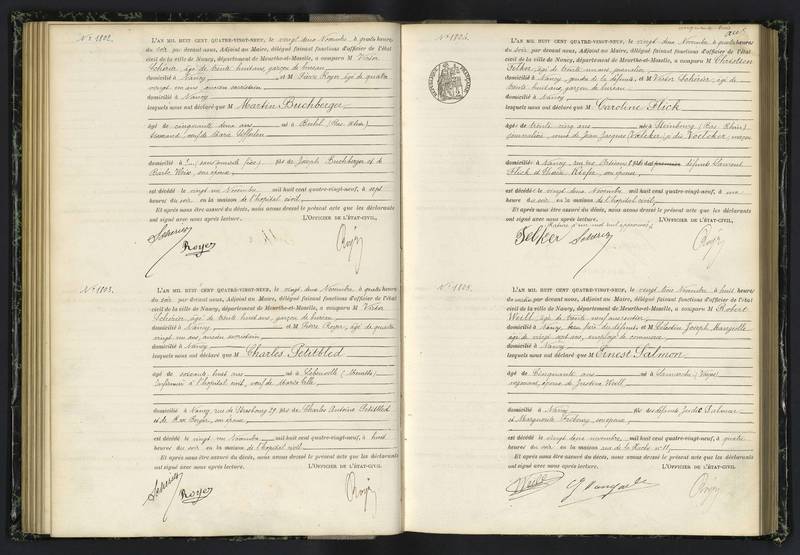 N° 1802.
L'AN MIL HUIT CENT QUATRE-VINGT-NEUF, le vingt deux Novembre à quatre heures
du soir par devant nous, Adjoint au Maire, délégué faisant fonctions d'officier de l'état
civil de la ville de Nancy, département de Meurthe-et-Moselle, a comparu M Victor
Scherier âgé de trente huit ans, garçon de bureau
domicilié à Nancy et M Pierre Royer, âgé de quatre
vingt un ans, ancien sacristain
domicilié à Nancy
lesquels nous ont déclaré que M Martin Buchberger
âgé de cinquante deux ans né à (Bas Rhin)
veuf de Marie
domicilié à fils de Joseph Buchberger et de
Barbe Weis, son épouse
est décédé le vingt un Novembre mil huit cent quatre-vingt-neuf, à sept
heures du soir en la maison de l'hôpital civil
Et après nous être assuré du décès, nous avons dressé le présent acte que les déclarants
ont signé avec nous après lecture. L'OFFICIER DE L'ÉTAT-CIVIL,
Royer
N° 1803.
L'AN MIL HUIT CENT QUATRE-VINGT-NEUF, le vingt deux Novembre à quatre heures
du soir par devant nous, Adjoint au Maire, délégué faisant fonctions d'officier de l'état
civil de la ville de Nancy, département de Meurthe-et-Moselle, a comparu M Victor
Scherier, âgé de trente huit ans, garçon de bureau
domicilié à Nancy et M Pierre Royer, âgé de quatre
vingt un ans, ancien sacristain
domicilié à Nancy
lesquels nous ont déclaré que M Charles Petitbled
âgé de soixante huit ans né à (Meurthe)
infirmier à l'hôpital civil, veuf de Marie
domicilié à Nancy, rue de Strasbourg 29 fils de Charles Antoine Petitbled
et de son épouse
est décédé le vingt un Novembre mil huit cent quatre-vingt-neuf, à huit
heures du soir en la maison de l'hôpital civil
Et après nous être assuré du décès, nous avons dressé le présent acte que les déclarants
ont signé avec nous après lecture. L'OFFICIER DE L'ÉTAT-CIVIL,
Royer
N° 1804.
L'AN MIL HUIT CENT QUATRE-VINGT-NEUF, le vingt deux Novembre à quatre heures
du soir par devant nous, Adjoint au Maire, délégué faisant fonctions d'officier de l'état
civil de la ville de Nancy, département de Meurthe-et-Moselle, a comparu M Christien
Felker âgé de trente un ans
domicilié à Nancy, gendre de la défunte et M Victor Scherier âgé de
trente huit ans, garçon de bureau
domicilié à Nancy
lesquels nous ont déclaré que M Caroline Flick
âgée de trente cinq ans née à Steinbourg (Bas Rhin)
journalière, veuve de Jean Jacques Voelcker
domiciliée à Nancy, rue défunts Laurent
Flick et Marie Kiefer, son épouse
est décédée le vingt deux Novembre mil huit cent quatre-vingt-neuf, à une
heure du soir en la maison de l'hôpital civil
Et après nous être assuré du décès, nous avons dressé le présent acte que les déclarants
ont signé avec nous après lecture. L'OFFICIER DE L'ÉTAT-CIVIL,
Rature d'un mot nul approuvée
Felker
N° 1805.
L'AN MIL HUIT CENT QUATRE-VINGT-NEUF, le vingt trois Novembre à huit heures
du matin par devant nous, Adjoint au Maire, délégué faisant fonctions d'officier de l'état
civil de la ville de Nancy, département de Meurthe-et-Moselle, a comparu M Robert
Weill, âgé de trente neuf ans
domicilié à Nancy, beau frère du défunt et M Célestin Joseph
âgé de vingt sept ans, employé de commerce
domicilié à Nancy
lesquels nous ont déclaré que M Ernest Salmon
âgé de Cinquante ans né à Lamarche (Vosges)
négociant, époux de Justine Weill
domicilié à Nancy fils des défunts Salmon
et Marguerite Fribourg, son épouse
est décédé le vingt deux novembre mil huit cent quatre-vingt-neuf, à quatre
heures du soir en la maison rue de la n° 11
Et après nous être assuré du décès, nous avons dressé le présent acte que les déclarants
ont signé avec nous après lecture. L'OFFICIER DE L'ÉTAT-CIVIL,
Weill